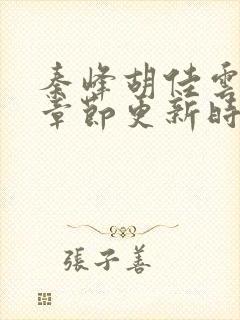 秦峰胡佳雲
章節更新時
張子善